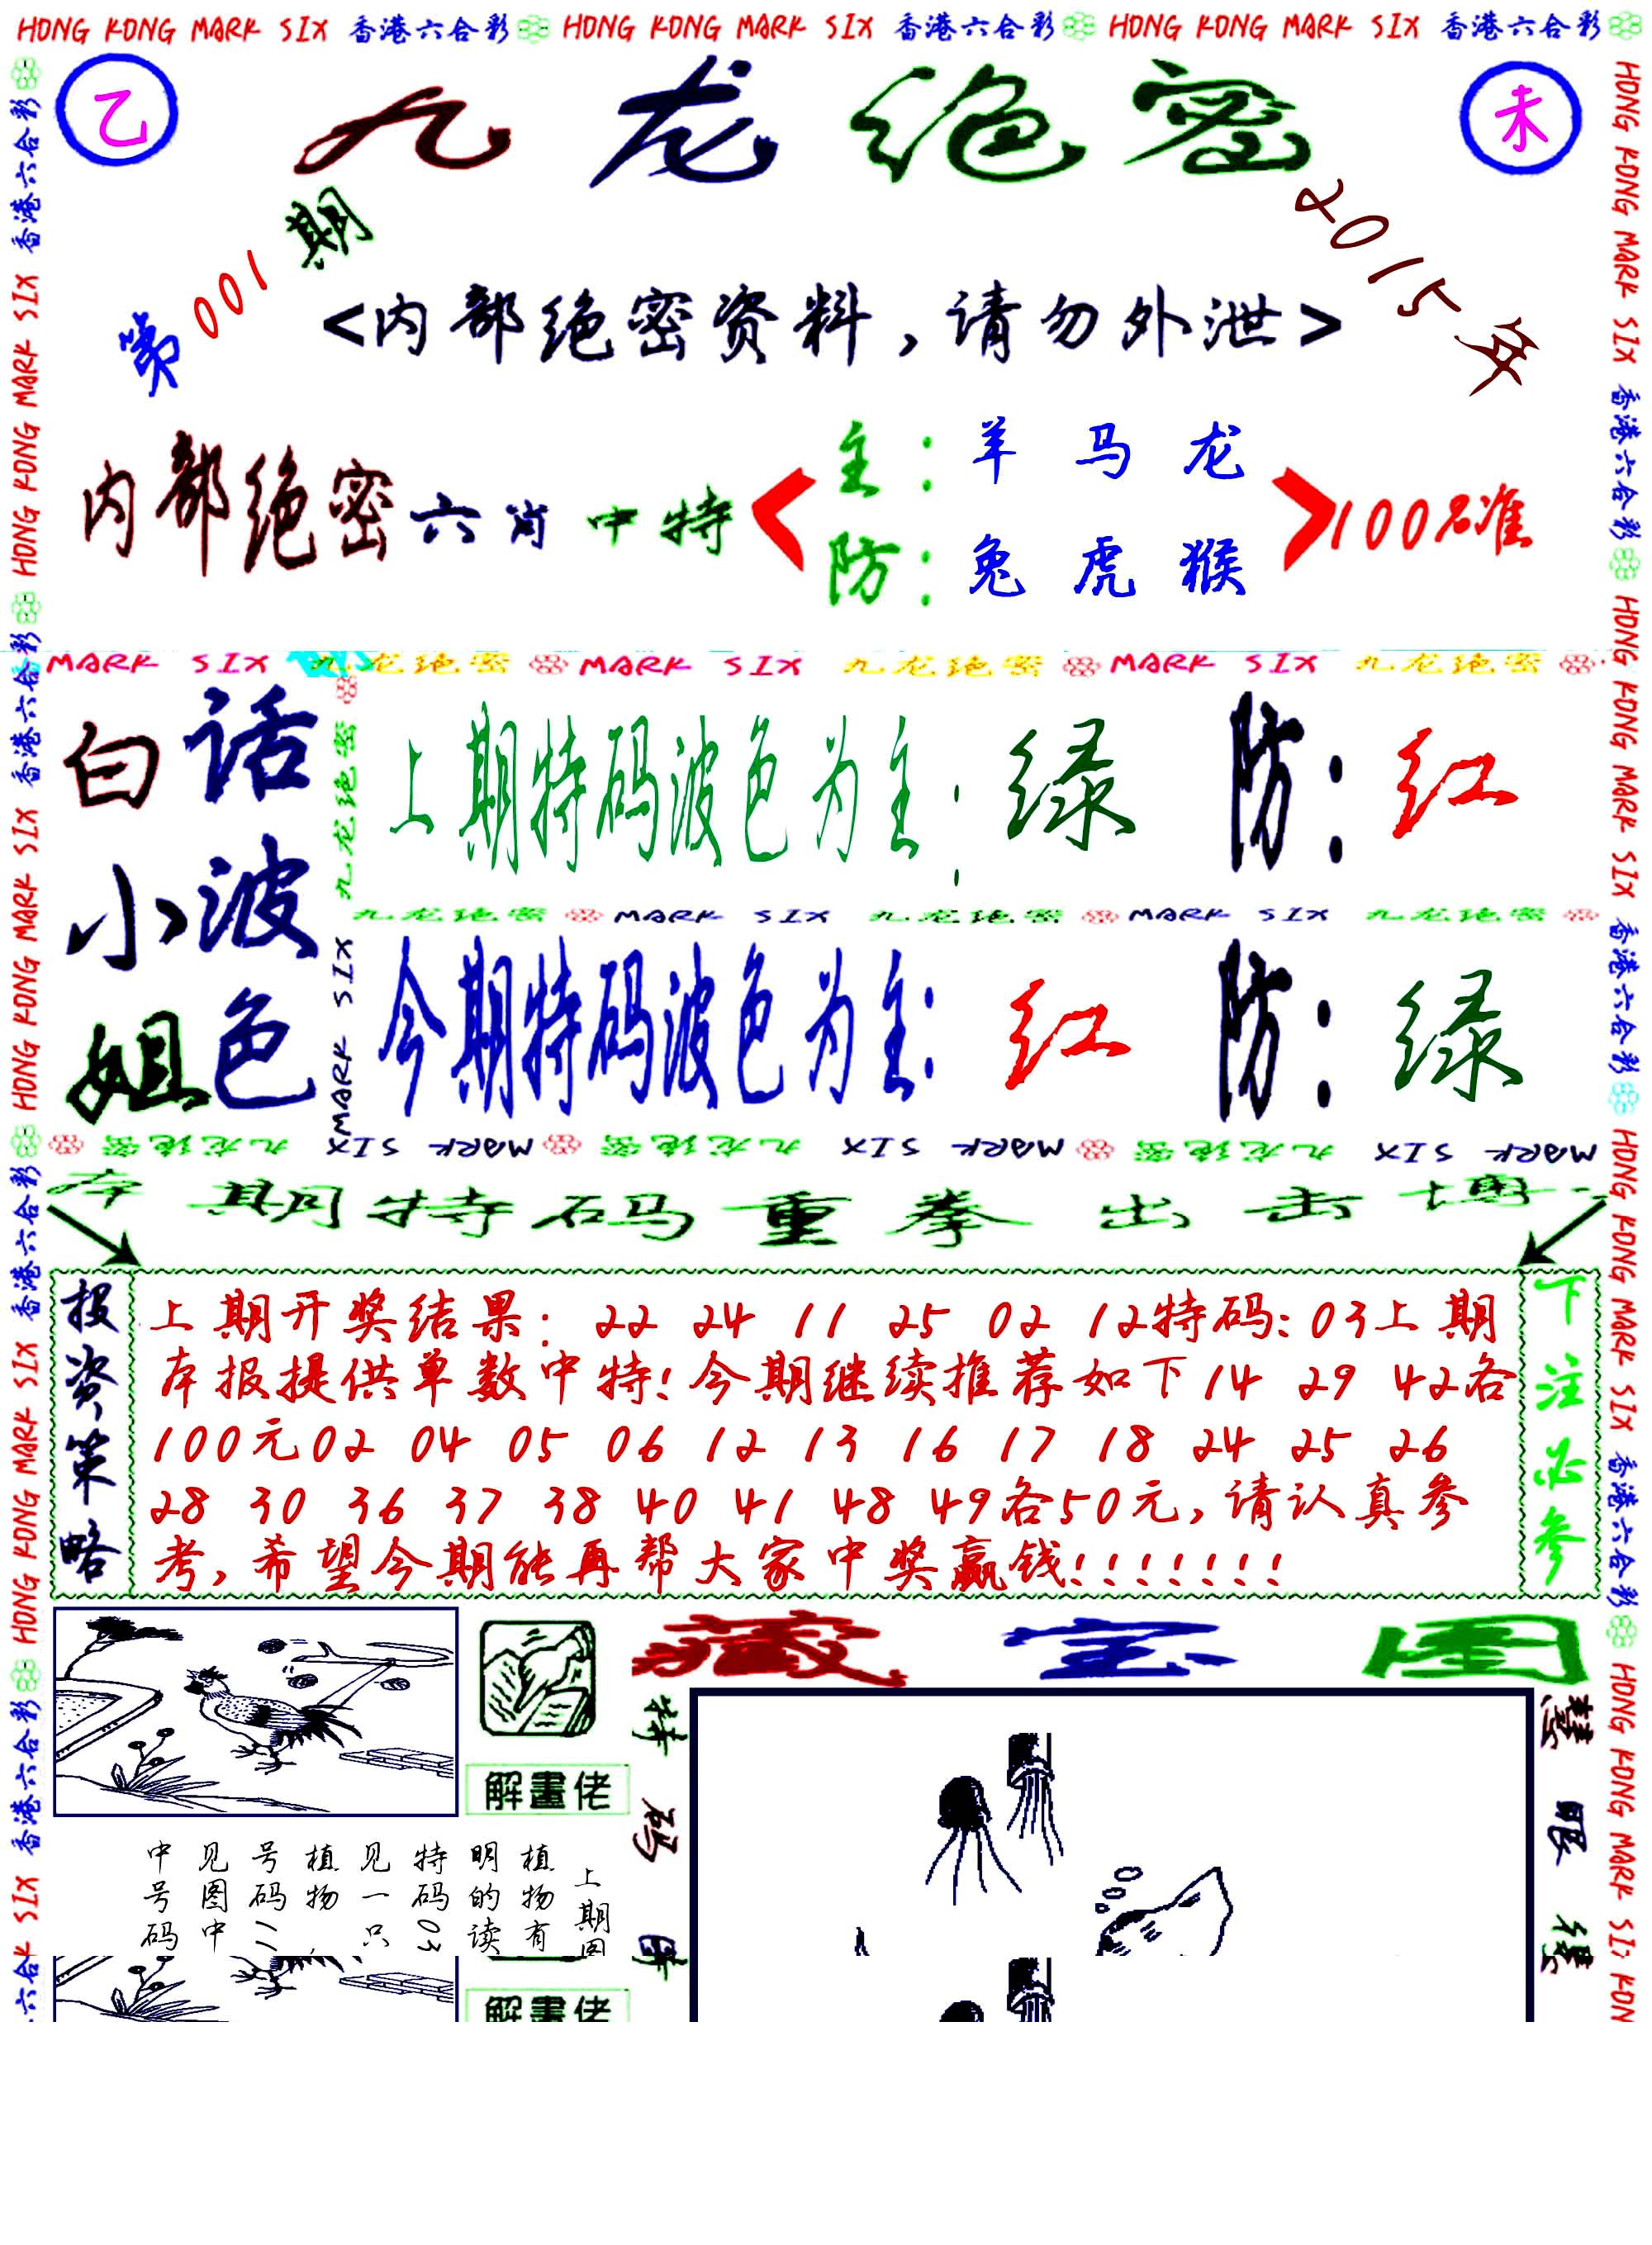 HONG KONG MARK SIX 香港六合彩 HONG KONG MARK SIX 香港六合彩 HONG KONG MARK SIX 香港六合彩
乙 九龙绝密 未
第001期 2015年
<内部绝密资料,请勿外泄>
内部绝密六肖中特
主:羊马龙
防:兔虎猴
100%准
MARK SIX 九龙绝密 MARK SIX 九龙绝密 MARK SIX 九龙绝密
白小姐
话波色
上期特码波色为主:绿 防:红
九龙绝密 MARK SIX 九龙绝密 MARK SIX 九龙绝密
今期特码波色为主:红 防:绿
九龙绝密 MARK SIX 九龙绝密 MARK SIX 九龙绝密 MARK SIX
本期特码重拳出击博
投资策略
上期开奖结果:22 24 11 25 02 12特码:03上期
本报提供单数中特!今期继续推荐如下14 29 42各
100元02 04 05 06 12 13 16 17 18 24 25 26
28 30 36 37 38 40 41 48 49各50元,请认真参
考,希望今期能再帮大家中奖赢钱!!!!!!!
下注必参
藏宝图
解畫佬
特码
慧眼
上期图
植物有
明的读
特码03
见一只
植物,
号码11
见图中
中号码
解畫佬